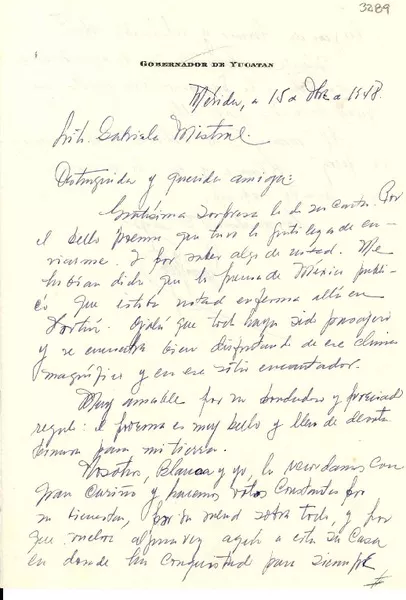 3289
GOBERNADOR DE YUCATAN
Mérida, a 15 de Dbre de 1948.
Srita. Gabriela Mistral.
Distinguida y querida amiga:
Gratísima sorpresa la de su carta. Por
el bello poema que tuvo la gentileza de en-
viarme. Y por saber algo de usted. Me
habían dicho que la prensa de México publi-
có que estaba usted enferma allá en
Fortín. Ojalá que todo haya sido pasajero
y se encuentre bien disfrutando de ese clima
magnífico y en ese sitio encantador.
Muy amable por su bondadoso y precioso
regalo: el poema es muy bello y lleno de
ternura para mi tierra.
Nosotros, Blanca y yo, la recordamos con
gran cariño y hacemos votos constantes por
su bienestar, por su salud sobre todo, y por
que vuelva alguna vez aquí a esta su Casa
en donde ha conquistado para siempre